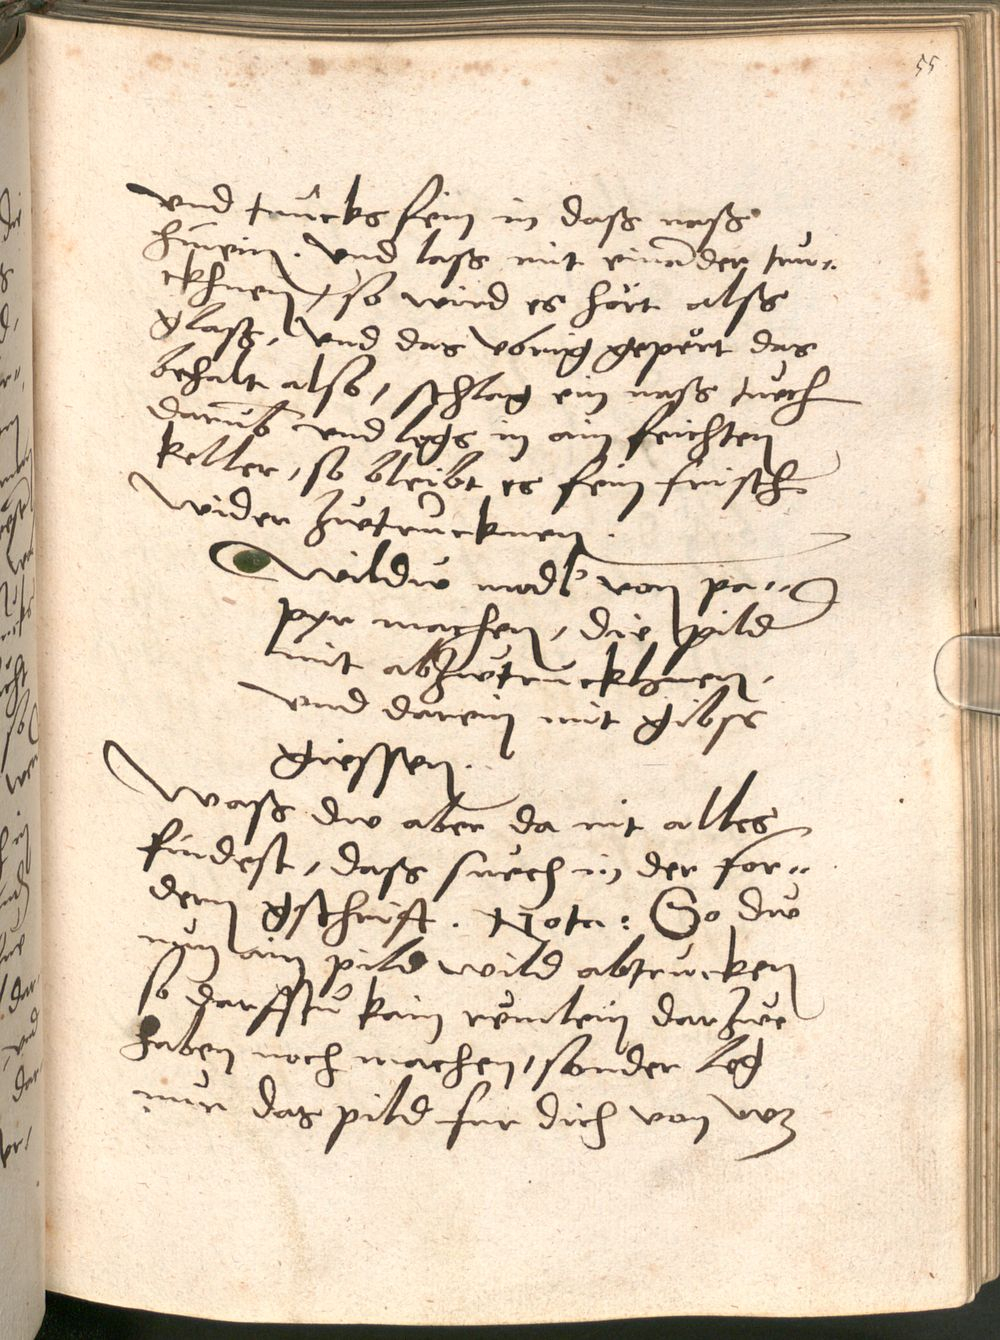 55
vnd truckhs fein in daß naß
hinein. vnd laß mit einander tru-
ckhnen, so wird es hört alß
glaß, vnd das vbrig gepört das
behalt also, schlag ein naß tuech
darumb vnd legs in ain feichten
keller, so bleibt es fein frisch
wider zuetrucknen.
Wildu modl von pa-
pyr machen, die pild
mit abzutruckhnen,
vnd darein mit gibss
giessen.
Waß du aber da nit alles
findest, daß suech in der for-
dern gschrift. Nota: So du
nun ain pild wild abtrucken
so darffstu kain remlein darzue
haben noch machen, sonder leg
nur das pild fur dich von